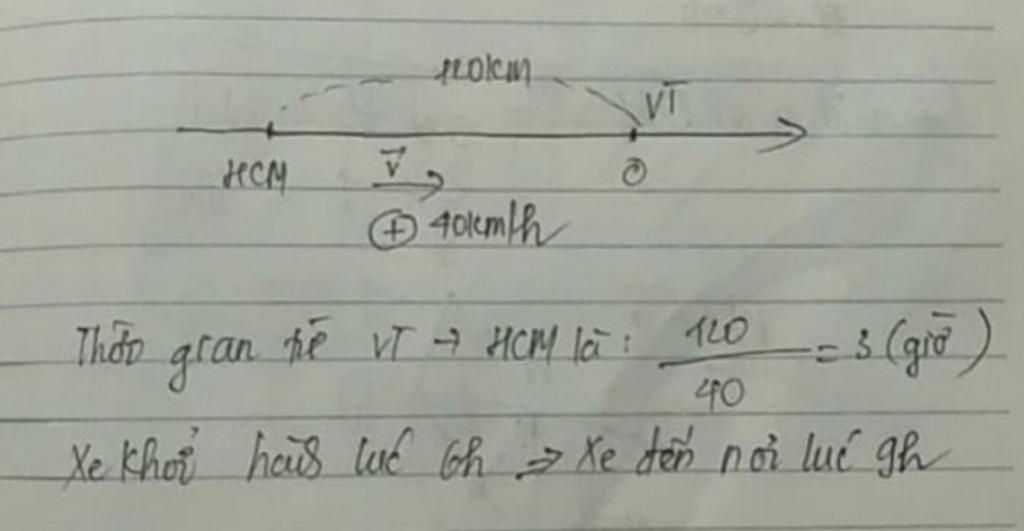 120km
VT
HCM
v
O
+ 40km/h
Thời gian từ VT → HCM là: 120/40 = 3 (giờ)
Xe khởi hành lúc 6h ⇒ Xe đến nơi lúc 9h